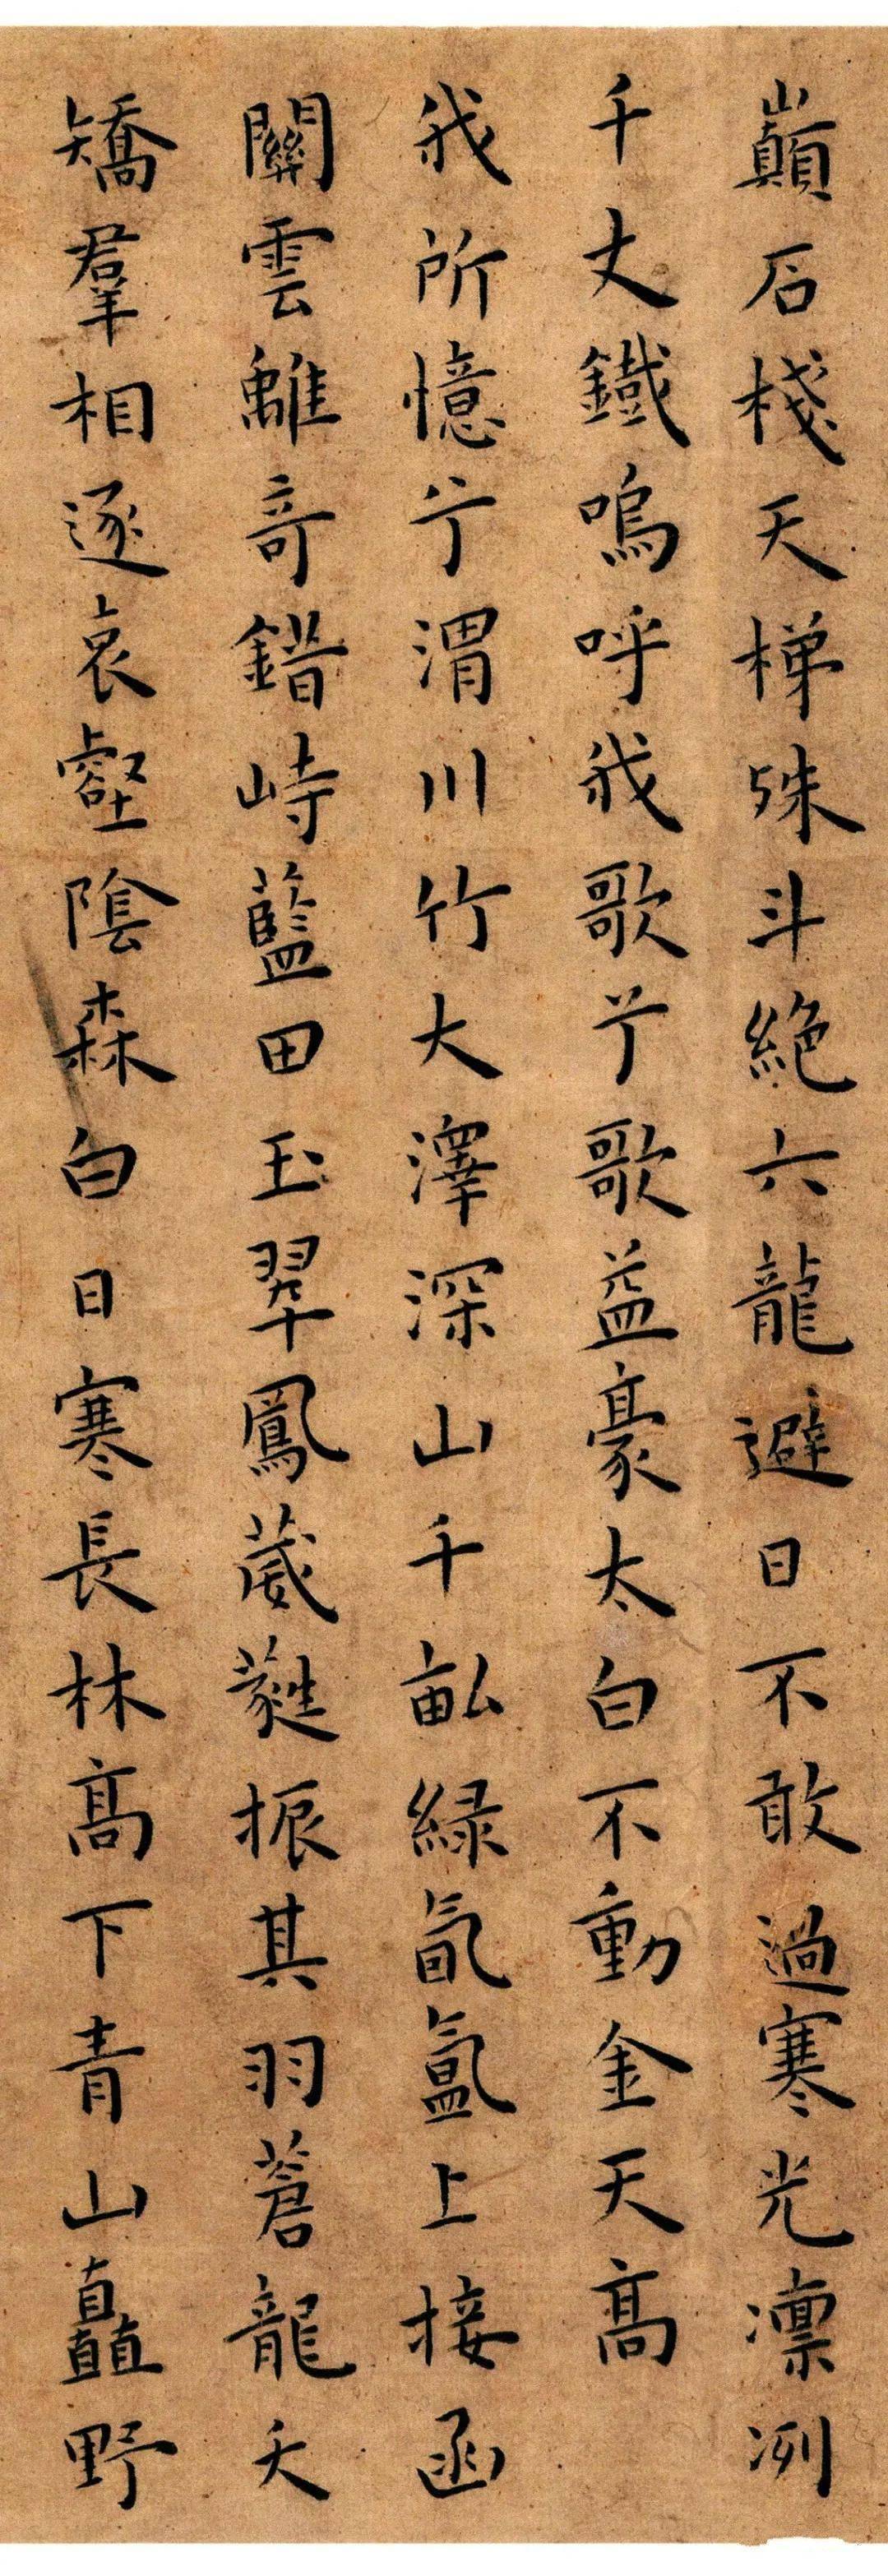 巔石棧天梯殊斗絕六龍避日不敢過寒光凛冽
千丈鐵嗚呼我歌兮歌益豪太白不動金天高
我所憶兮渭川竹大澤深山千畝緑氤氳上接函
關雲離奇錯峙藍田玉翠鳳葳蕤振其羽蒼龍夭
矯羣相逐哀壑陰森白日寒長林高下青山矗野